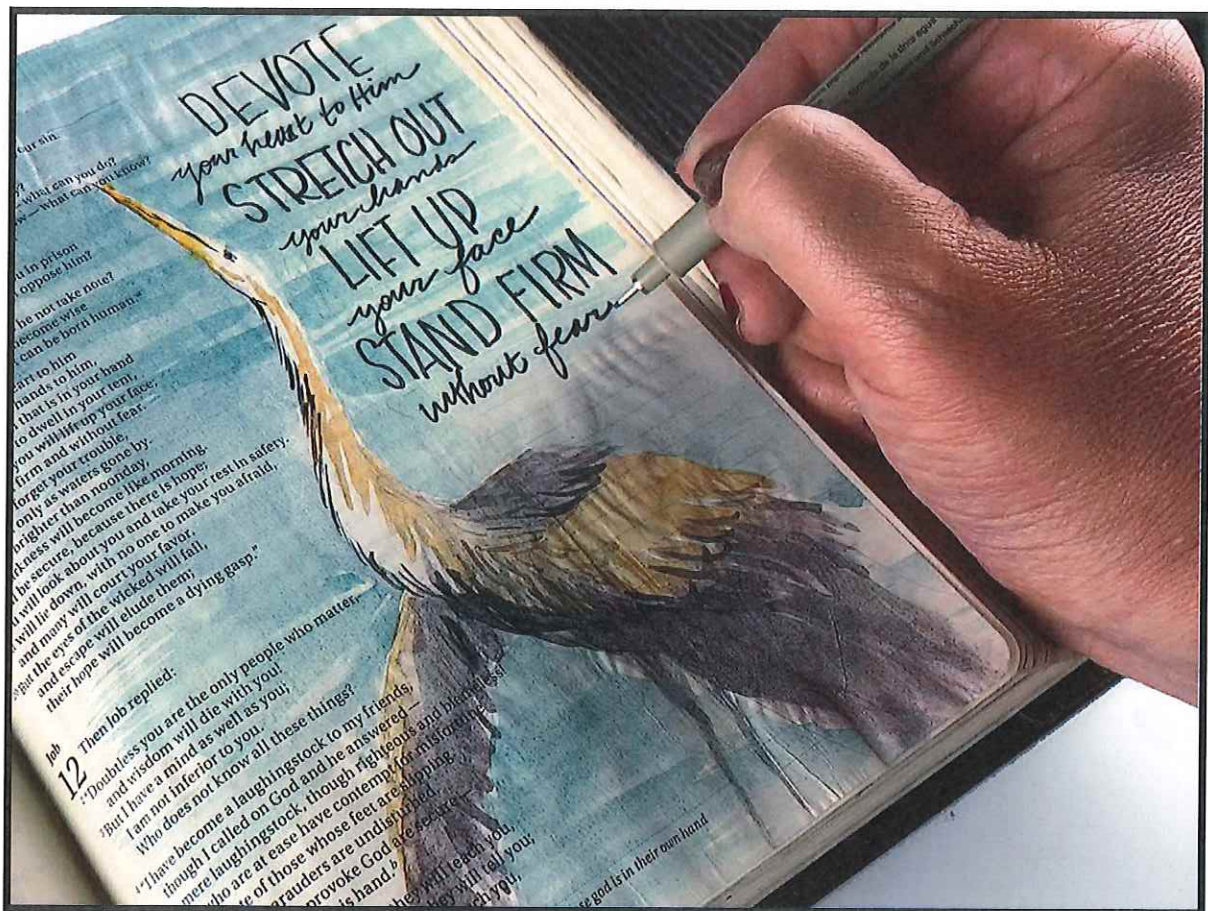 DEVOTE
your heart to Him
STRETCH OUT
your hands
LIFT UP
your face
STAND FIRM
without fear
our sin.
what can you do?
what can you know?
in prison
oppose him?
he not take note?
become wise
can be born human."
to him
hands to him,
that is in your hand
to dwell in your tent,
you will lift up your face;
firm and without fear.
forget your trouble,
only as waters gone by.
brighter than noonday,
will become like morning.
be secure, because there is hope;
will look about you and take your rest in safety.
will lie down, with no one to make you afraid,
and many will court your favor.
But the eyes of the wicked will fail,
and escape will elude them;
their hope will become a dying gasp."
Job
12 Then Job replied:
"Doubtless you are the only people who matter,
and wisdom will die with you!
But I have a mind as well as you;
I am not inferior to you.
Who does not know all these things?
"I have become a laughingstock to my friends,
though I called on God and he answered—
a mere laughingstock, though righteous and blameless!
who are at ease have contempt for misfortune
of those whose feet are slipping.
marauders are undisturbed,
provoke God are secure
is hand.
will teach you,
will tell you;
you,
god is in their own hand